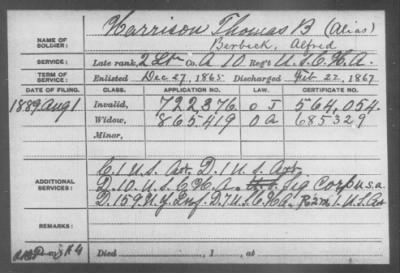 NAME OF SOLDIER: Harrison Thomas B (Alias)
Berbeck, Alfred
SERVICE: Late rank, 2 Lt Co. A 10 Reg't U.S.C.H.A.
TERM OF SERVICE: Enlisted Dec. 27, 1865 Discharged Feb 22, 1867
DATE OF FILING. CLASS. APPLICATION NO. LAW. CERTIFICATE NO.
1889 Aug 1 Invalid, 722376 o J 564,054.
Widow, 865419 O A 685329
Minor,
ADDITIONAL SERVICES: C. 1 U.S. Art. D. 1 U.S. Art.
D. 10. U.S.C.H.A. Sig Corp U.S.A.
D. 159. N.Y. Inf. D. 7 U.S.C.H.A. 1. U.S. Art
REMARKS:
Died , 1 , at